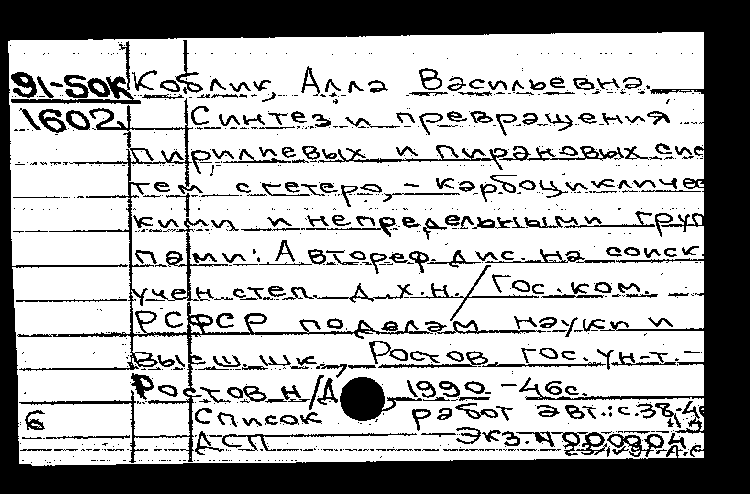 91-50К Коблик, Алла Васильевна.
1602, Синтез и превращения
пирилиевых и пирановых сис
тем, с гетеро, - карбоцикличес
кими и непредельными груп
пами: Автореф. дис. на соиск.
учен степ. д.х.н. / Гос. ком.
РСФСР по делам науки и
высш. шк., Ростов. гос. ун-т. -
Ростов н/Д, 1990 -46с.
Список работ авт.: с.38-46
6
ДСП Экз. N 000004